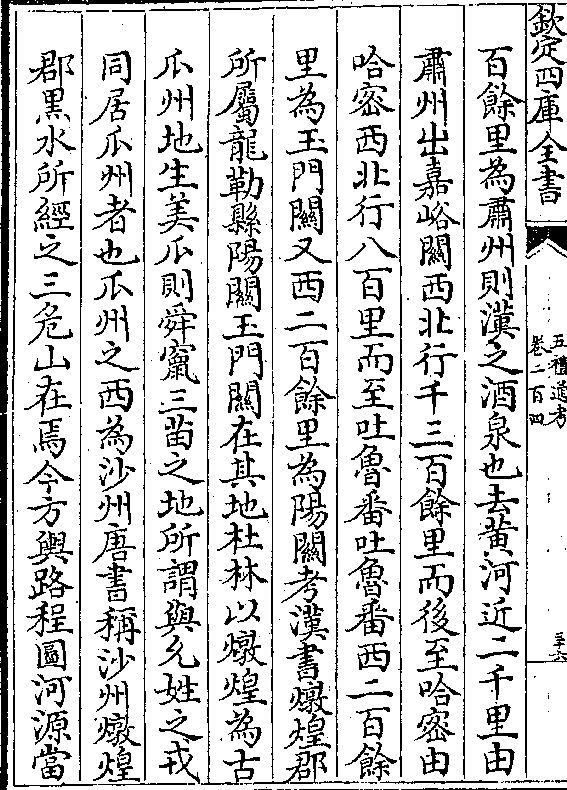 欽定四庫全書
五禮通考
卷二百四
三十六
百餘里為肅州則漢之酒泉也去黄河近二千里由
肅州出嘉峪關西北行千三百餘里而後至哈密由
哈密西北行八百里而至吐魯番吐魯番西二百餘
里為玉門關又西二百餘里為陽關考漢書燉煌郡
所屬龍勒縣陽關玉門關在其地杜林以燉煌為古
瓜州地生美瓜則舜竄三苗之地所謂與允姓之戎
同居瓜州者也瓜州之西為沙州唐書稱沙州燉煌
郡黑水所經之三危山在焉今方輿路程圖河源當